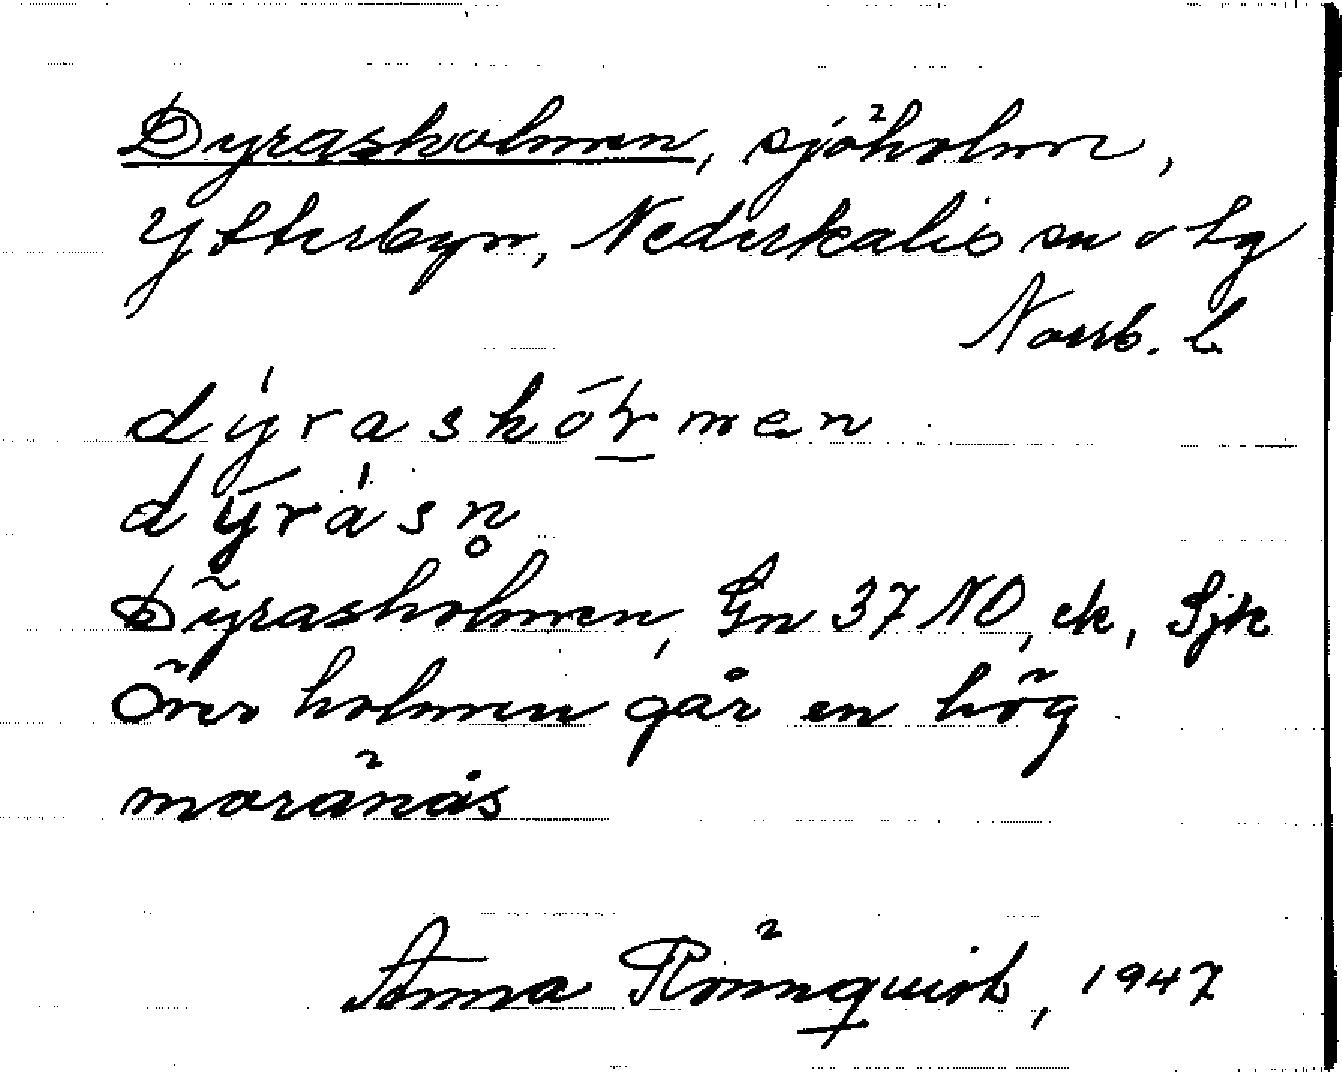 Dyrasholmen, sjöholm,
Ytterbyn, Nederkalix sn o tg
Norrb. l
dýrashōłmen
dȳrásn̥
Dÿrasholmen, Gn 37 NO, ek, Sjk
Över holmen går en hög
moränås
Anna Rönnquist, 1947